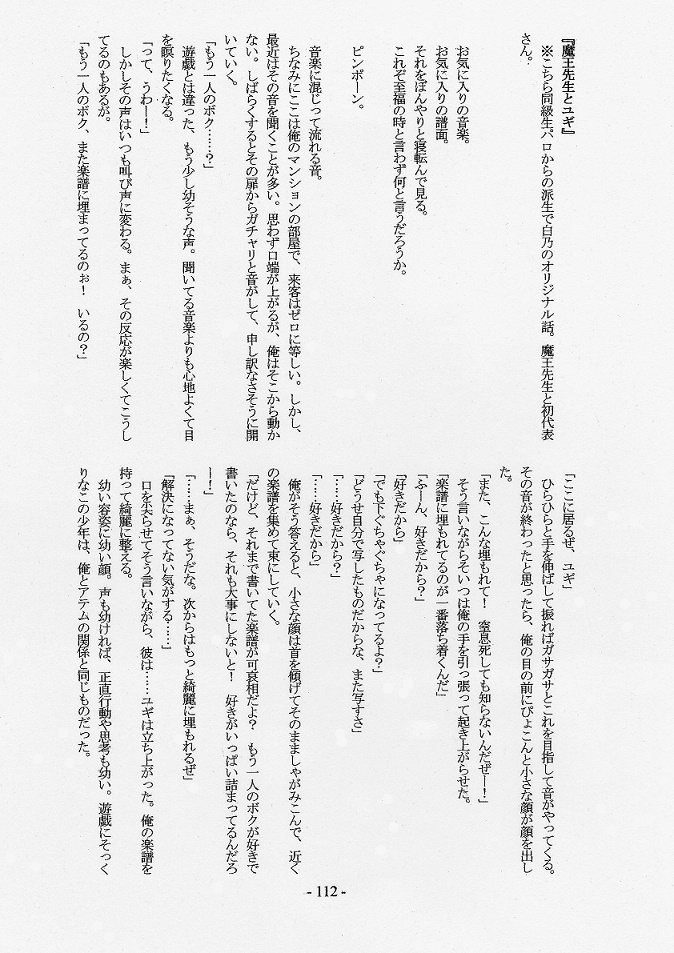 『魔王先生とユギ』
※こちら同級生パロからの派生で白乃のオリジナル話。魔王先生と初代表
さん。
お気に入りの音楽。
お気に入りの譜面。
それをぼんやりと寝転んで見る。
これぞ至福の時と言わず何と言うだろうか。
ピンポーン。
音楽に混じって流れる音。
ちなみにここは俺のマンションの部屋で、来客はゼロに等しい。しかし、
最近はその音を聞くことが多い。思わず口端が上がるが、俺はそこから動か
ない。しばらくするとその扉からガチャリと音がして、申し訳なさそうに開
いていく。
「もう一人のボク……？」
遊戯とは違った、もう少し幼そうな声。聞いてる音楽よりも心地よくて目
を瞑りたくなる。
「って、うわー！」
しかしその声はいつも叫び声に変わる。まぁ、その反応が楽しくてこうし
てるのもあるが。
「もう一人のボク、また楽譜に埋まってるのぉ！　いるの？」
「ここに居るぜ、ユギ」
ひらひらと手を伸ばして振ればガサガサとこれを目指して音がやってくる。
その音が終わったと思ったら、俺の目の前にぴょこんと小さな顔が顔を出し
た。
「また、こんな埋もれて！　窒息死しても知らないんだぜー！」
そう言いながらそいつは俺の手を引っ張って起き上がらせた。
「楽譜に埋もれてるのが一番落ち着くんだ」
「ふーん、好きだから？」
「好きだから」
「でも下ぐちゃぐちゃになってるよ？」
「どうせ自分で写したものだからな、また写すさ」
「……好きだから？」
「……好きだから」
俺がそう答えると、小さな顔は首を傾げてそのまましゃがみこんで、近く
の楽譜を集めて束にしていく。
「だけど、それまで書いてた楽譜が可哀相だよ？　もう一人のボクが好きで
書いたのなら、それも大事にしないと！　好きがいっぱい詰まってるんだろ
ー！」
「……まぁ、そうだな。次からはもっと綺麗に埋もれるぜ」
「解決になってない気がする……」
口を尖らせてそう言いながら、彼は……ユギは立ち上がった。俺の楽譜を
持って綺麗に整える。
幼い容姿に幼い顔。声も幼ければ、正直行動や思考も幼い。遊戯にそっく
りなこの少年は、俺とアテムの関係と同じものだった。
- 112 -